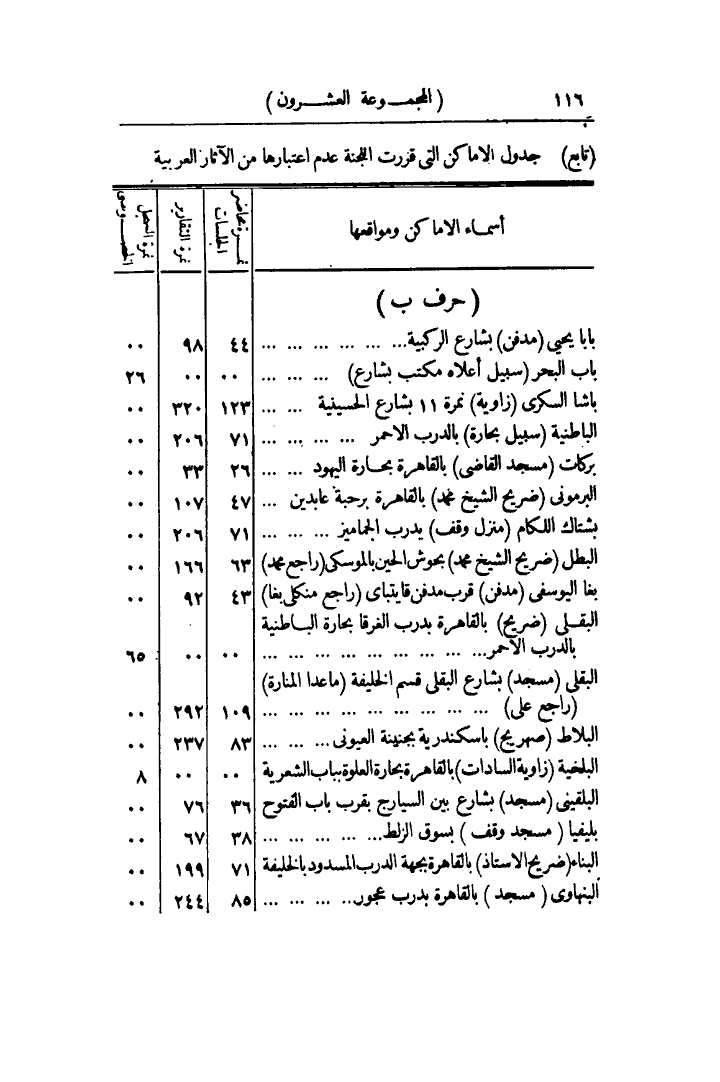 ١١٦ (المجموعة العشرون)
(تابع) جدول الاماكن التى قررت اللجنة عدم اعتبارها من الآثار العربية
أسماء الاماكن ومواقعها | نمرة محاضر الجلسات | نمرة التقارير | نمرة السجل الخصوصى
(حرف ب)
بابا يحيى (مدفن) بشارع الركبية... ... ... ... ... ... ٤٤ ٩٨ ٠٠
باب البحر (سبيل أعلاه مكتب بشارع) ... ... ... ٠٠ ٠٠ ٢٦
باشا السكرى (زاوية) نمرة ١١ بشارع الحسينية ... ... ١٢٣ ٣٢٠ ٠٠
الباطنية (سبيل بحارة) بالدرب الاحمر ... ... ... ... ٧١ ٢٠٦ ٠٠
بركات (مسجد القاضى) بالقاهرة بحارة اليهود ... ... ٢٦ ٣٣ ٠٠
البرمونى (ضريح الشيخ محمد) بالقاهرة برحبة عابدين ... ٤٧ ١٠٧ ٠٠
بشتاك اللكام (منزل وقف) بدرب الجماميز ... ... ... ٧١ ٢٠٦ ٠٠
البطل (ضريح الشيخ محمد) بحوش الحين بالموسكى (راجع محمد) ٦٣ ١٦٦ ٠٠
بغا اليوسفى (مدفن) قرب مدفن قايتباى (راجع منكلى بغا) ٤٣ ٩٢ ٠٠
البقلى (ضريح) بالقاهرة بدرب الغرقا بحارة الباطنية
بالدرب الاحمر... ... ... ... ... ... ... ... ... ٠٠ ٠٠ ٦٥
البقلى (مسجد) بشارع البقلى قسم الخليفة (ماعدا المنارة)
(راجع على) ... ... ... ... ... ... ... ... ... ١٠٩ ٢٩٢ ٠٠
البلاط (صهريج) باسكندرية بجنينة العيونى... ... ... ٨٣ ٢٣٧ ٠٠
البلخية (زاوية السادات) بالقاهرة بحارة العلوة بباب الشعرية ٠٠ ٠٠ ٨
البلقينى (مسجد) بشارع بين السيارج بقرب باب الفتوح ٣٦ ٧٦ ٠٠
بليفيا (مسجد وقف) بسوق الزلط... ... ... ... ... ٣٨ ٦٧ ٠٠
البناء (ضريح الاستاذ) بالقاهرة بجهة الدرب المسدود بالخليفة ٧١ ١٩٩ ٠٠
البنهاوى (مسجد) بالقاهرة بدرب عجور... ... ... ... ٨٥ ٢٤٤ ٠٠